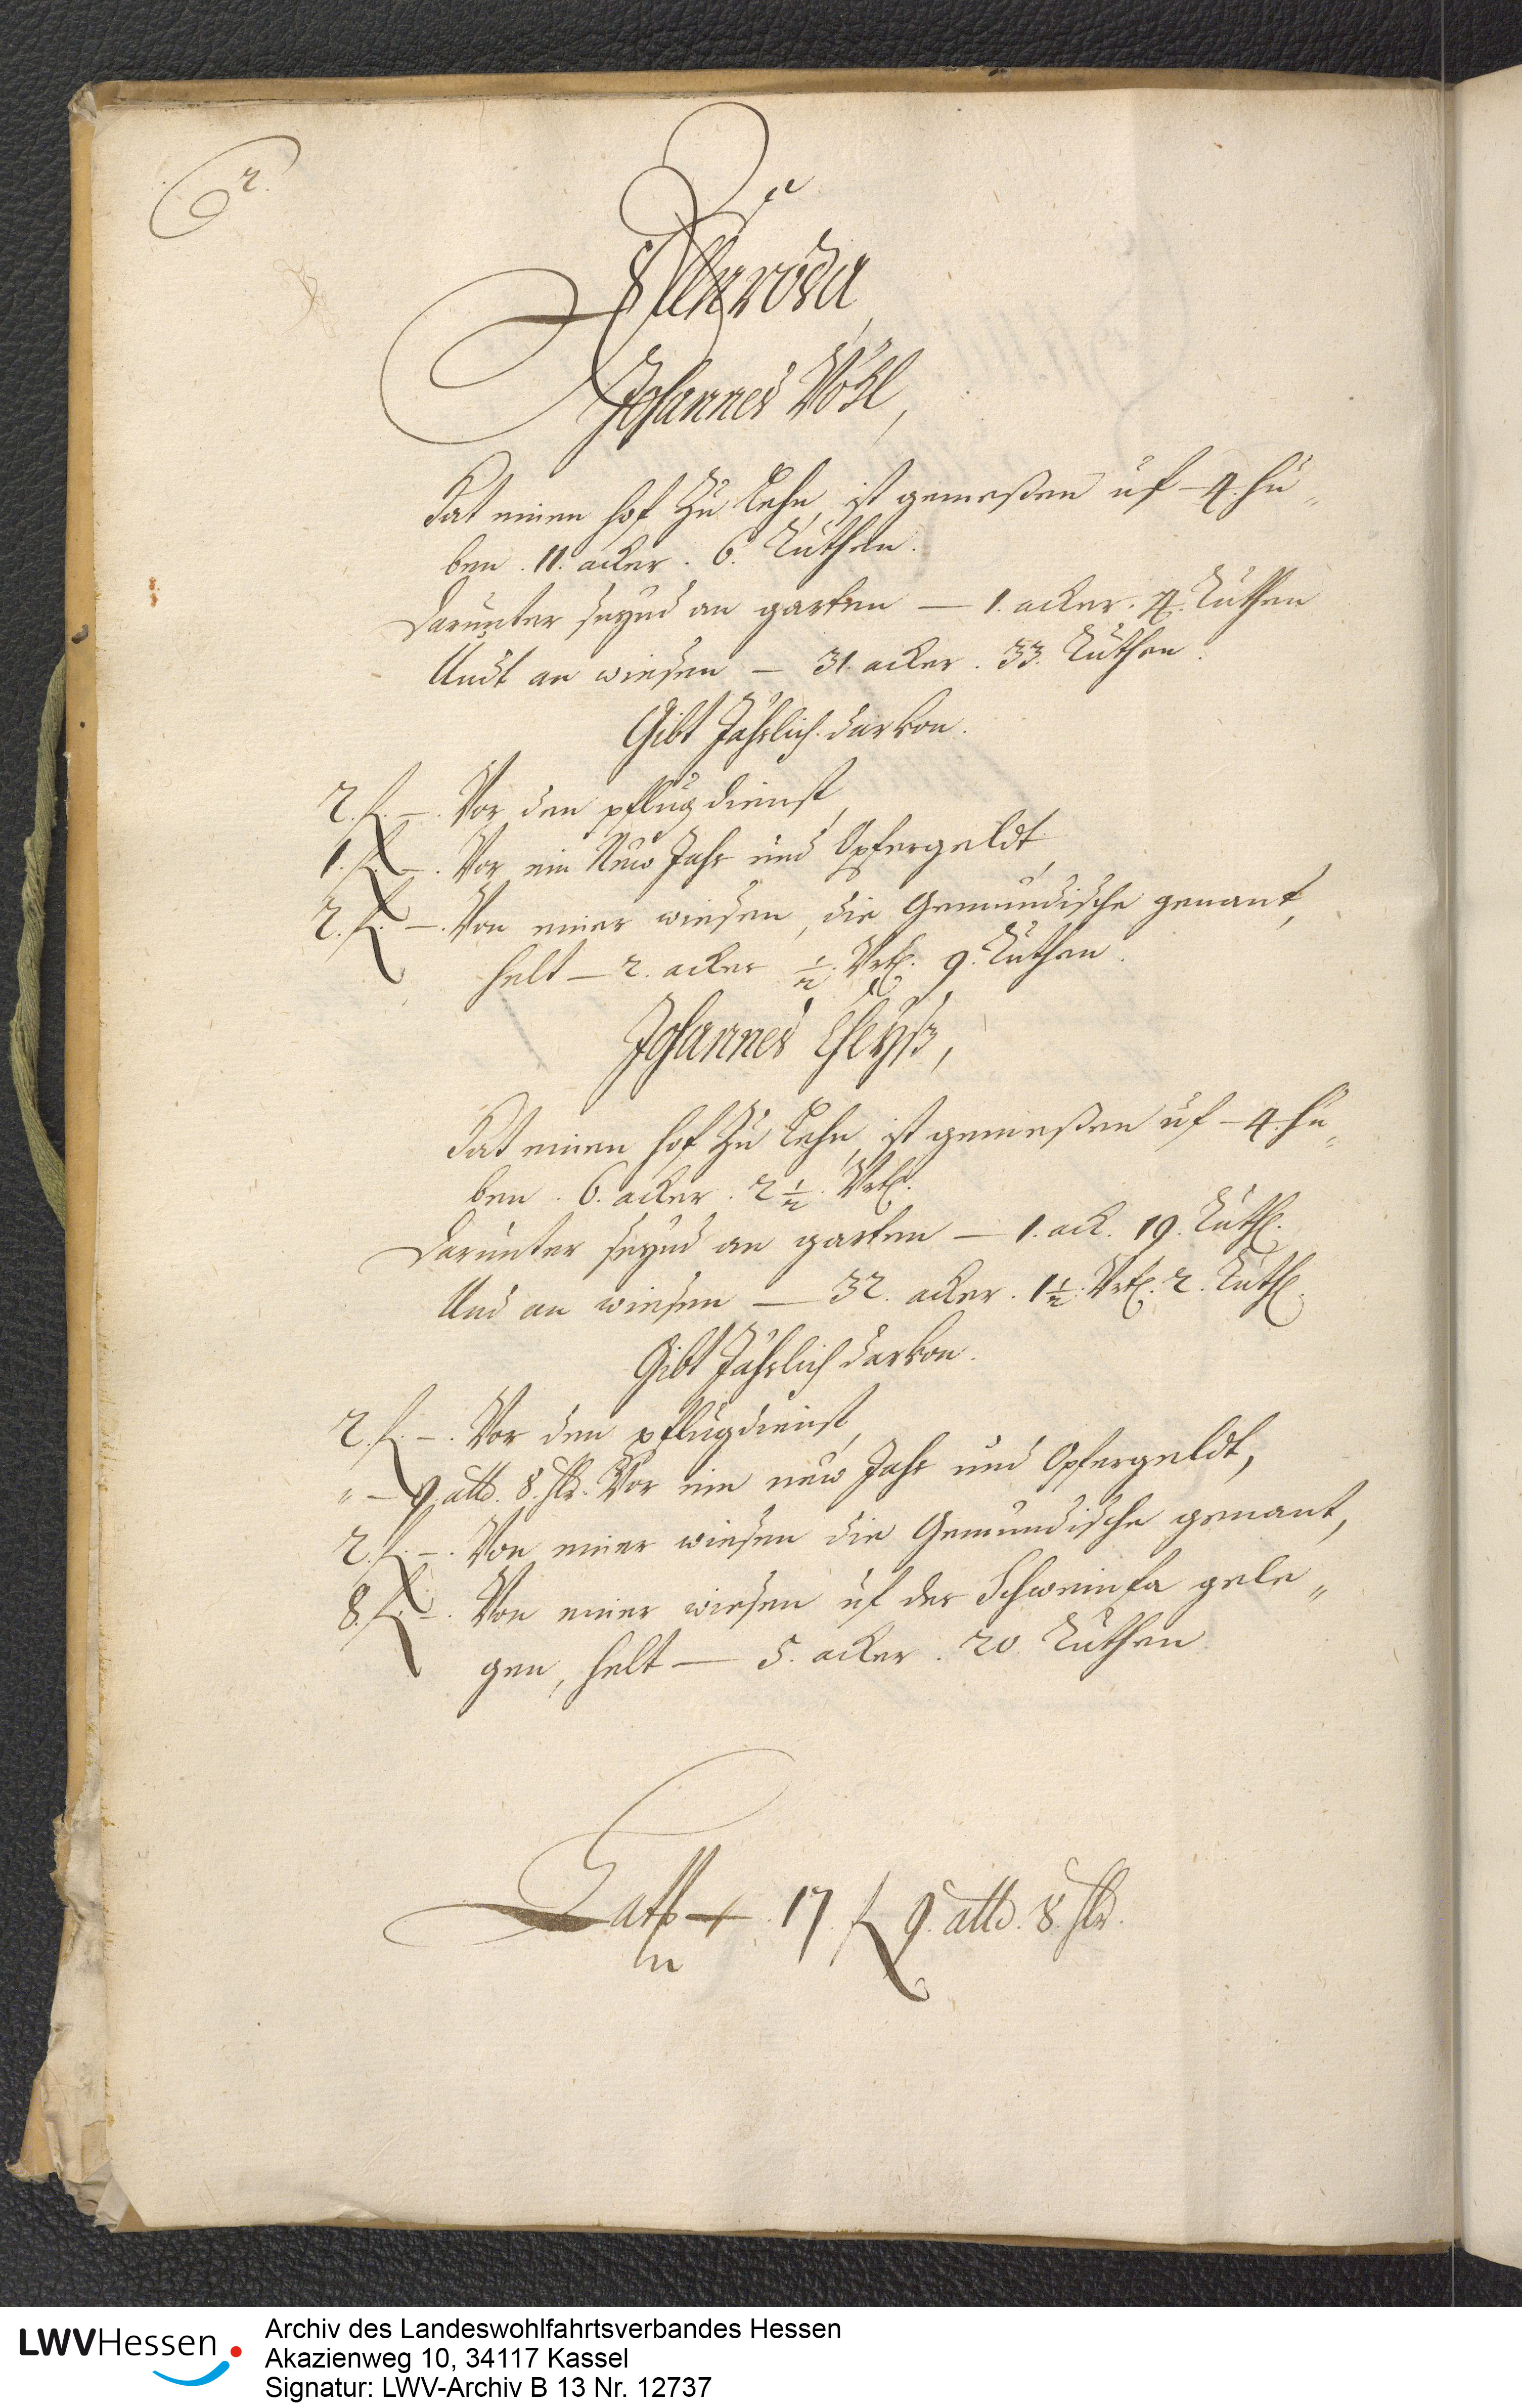 2.
Ellnroda
Johannes Vöhl,
Hat einen hof Zu Lehn, ist gemeßen uf – 4. hu„
ben . 11. acker . 6. Ruthen.
Darunter seynd an garten – 1. acker. 4. Ruthen
Undt an wiesen – 31. acker . 33. Ruthen.
Gibt Jährlich darvon.
2. fl. –. Vor den pflugdienst,
1. fl. –. Vor ein New Jahr und Opfergeldt,
2. fl. –. Von einer wiesen, die Gemündische genant,
helt – 2. acker ½. Vrtl. 9. Ruthen.
Johannes
Hat einen hof Zu Lehn, ist gemeßen uf – 4. hu„
ben . 6. acker . 2 ½. Vrtl.
Darunter seynd an garten – 1. ack. 19. Ruth.
Und an wiesen – 32. acker . 1 ½. Vrtl. 2. Ruth.
Gibt Jährlich darvon.
2. fl. –. Vor den pflugdienst,
„ – 9. alb. 8. hlr. Vor ein new Jahr und Opfergeldt,
2. fl. –. Von einer wiesen die Gemündische genant,
8. fl. –. Von einer wiesen uf der Schweinfa gele„
gen, helt – 5. acker . 20. Ruthen
Latt – 17. fl 9. alb. 8. hlr.
LWVHessen
Archiv des Landeswohlfahrtsverbandes Hessen
Akazienweg 10, 34117 Kassel
Signatur: LWV-Archiv B 13 Nr. 12737